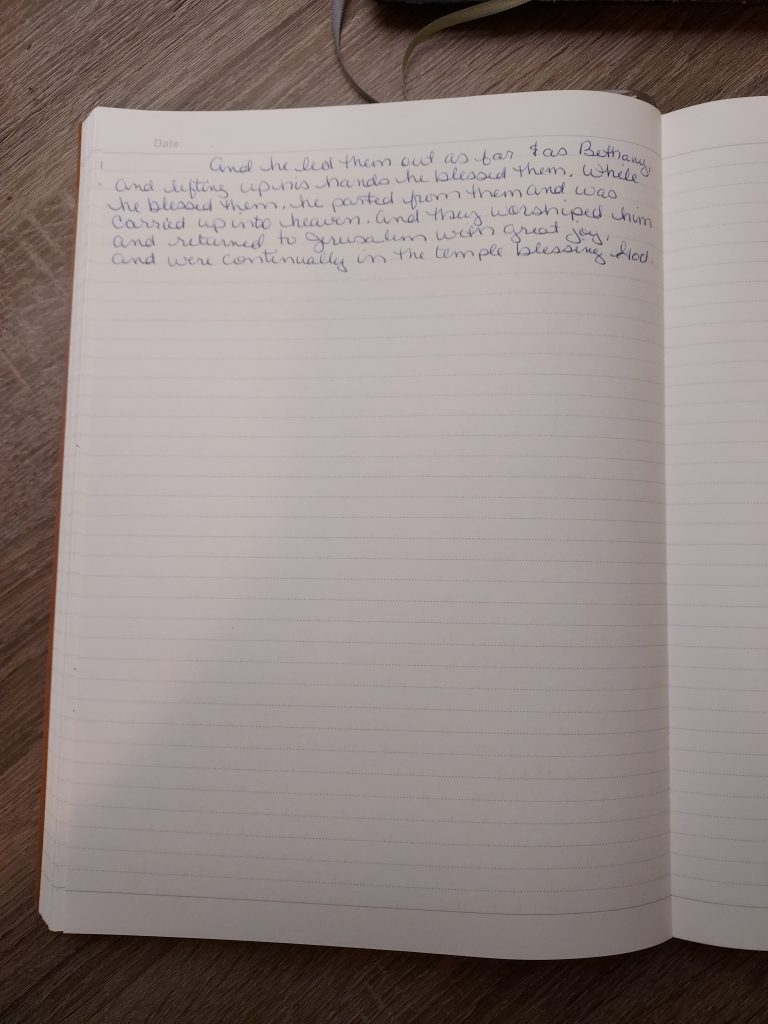 Date:
And he led them out as far as Bethany,
and lifting up his hands he blessed them. While
he blessed them, he parted from them and was
carried up into heaven. And they worshiped him
and returned to Jerusalem with great joy,
and were continually in the temple blessing God.